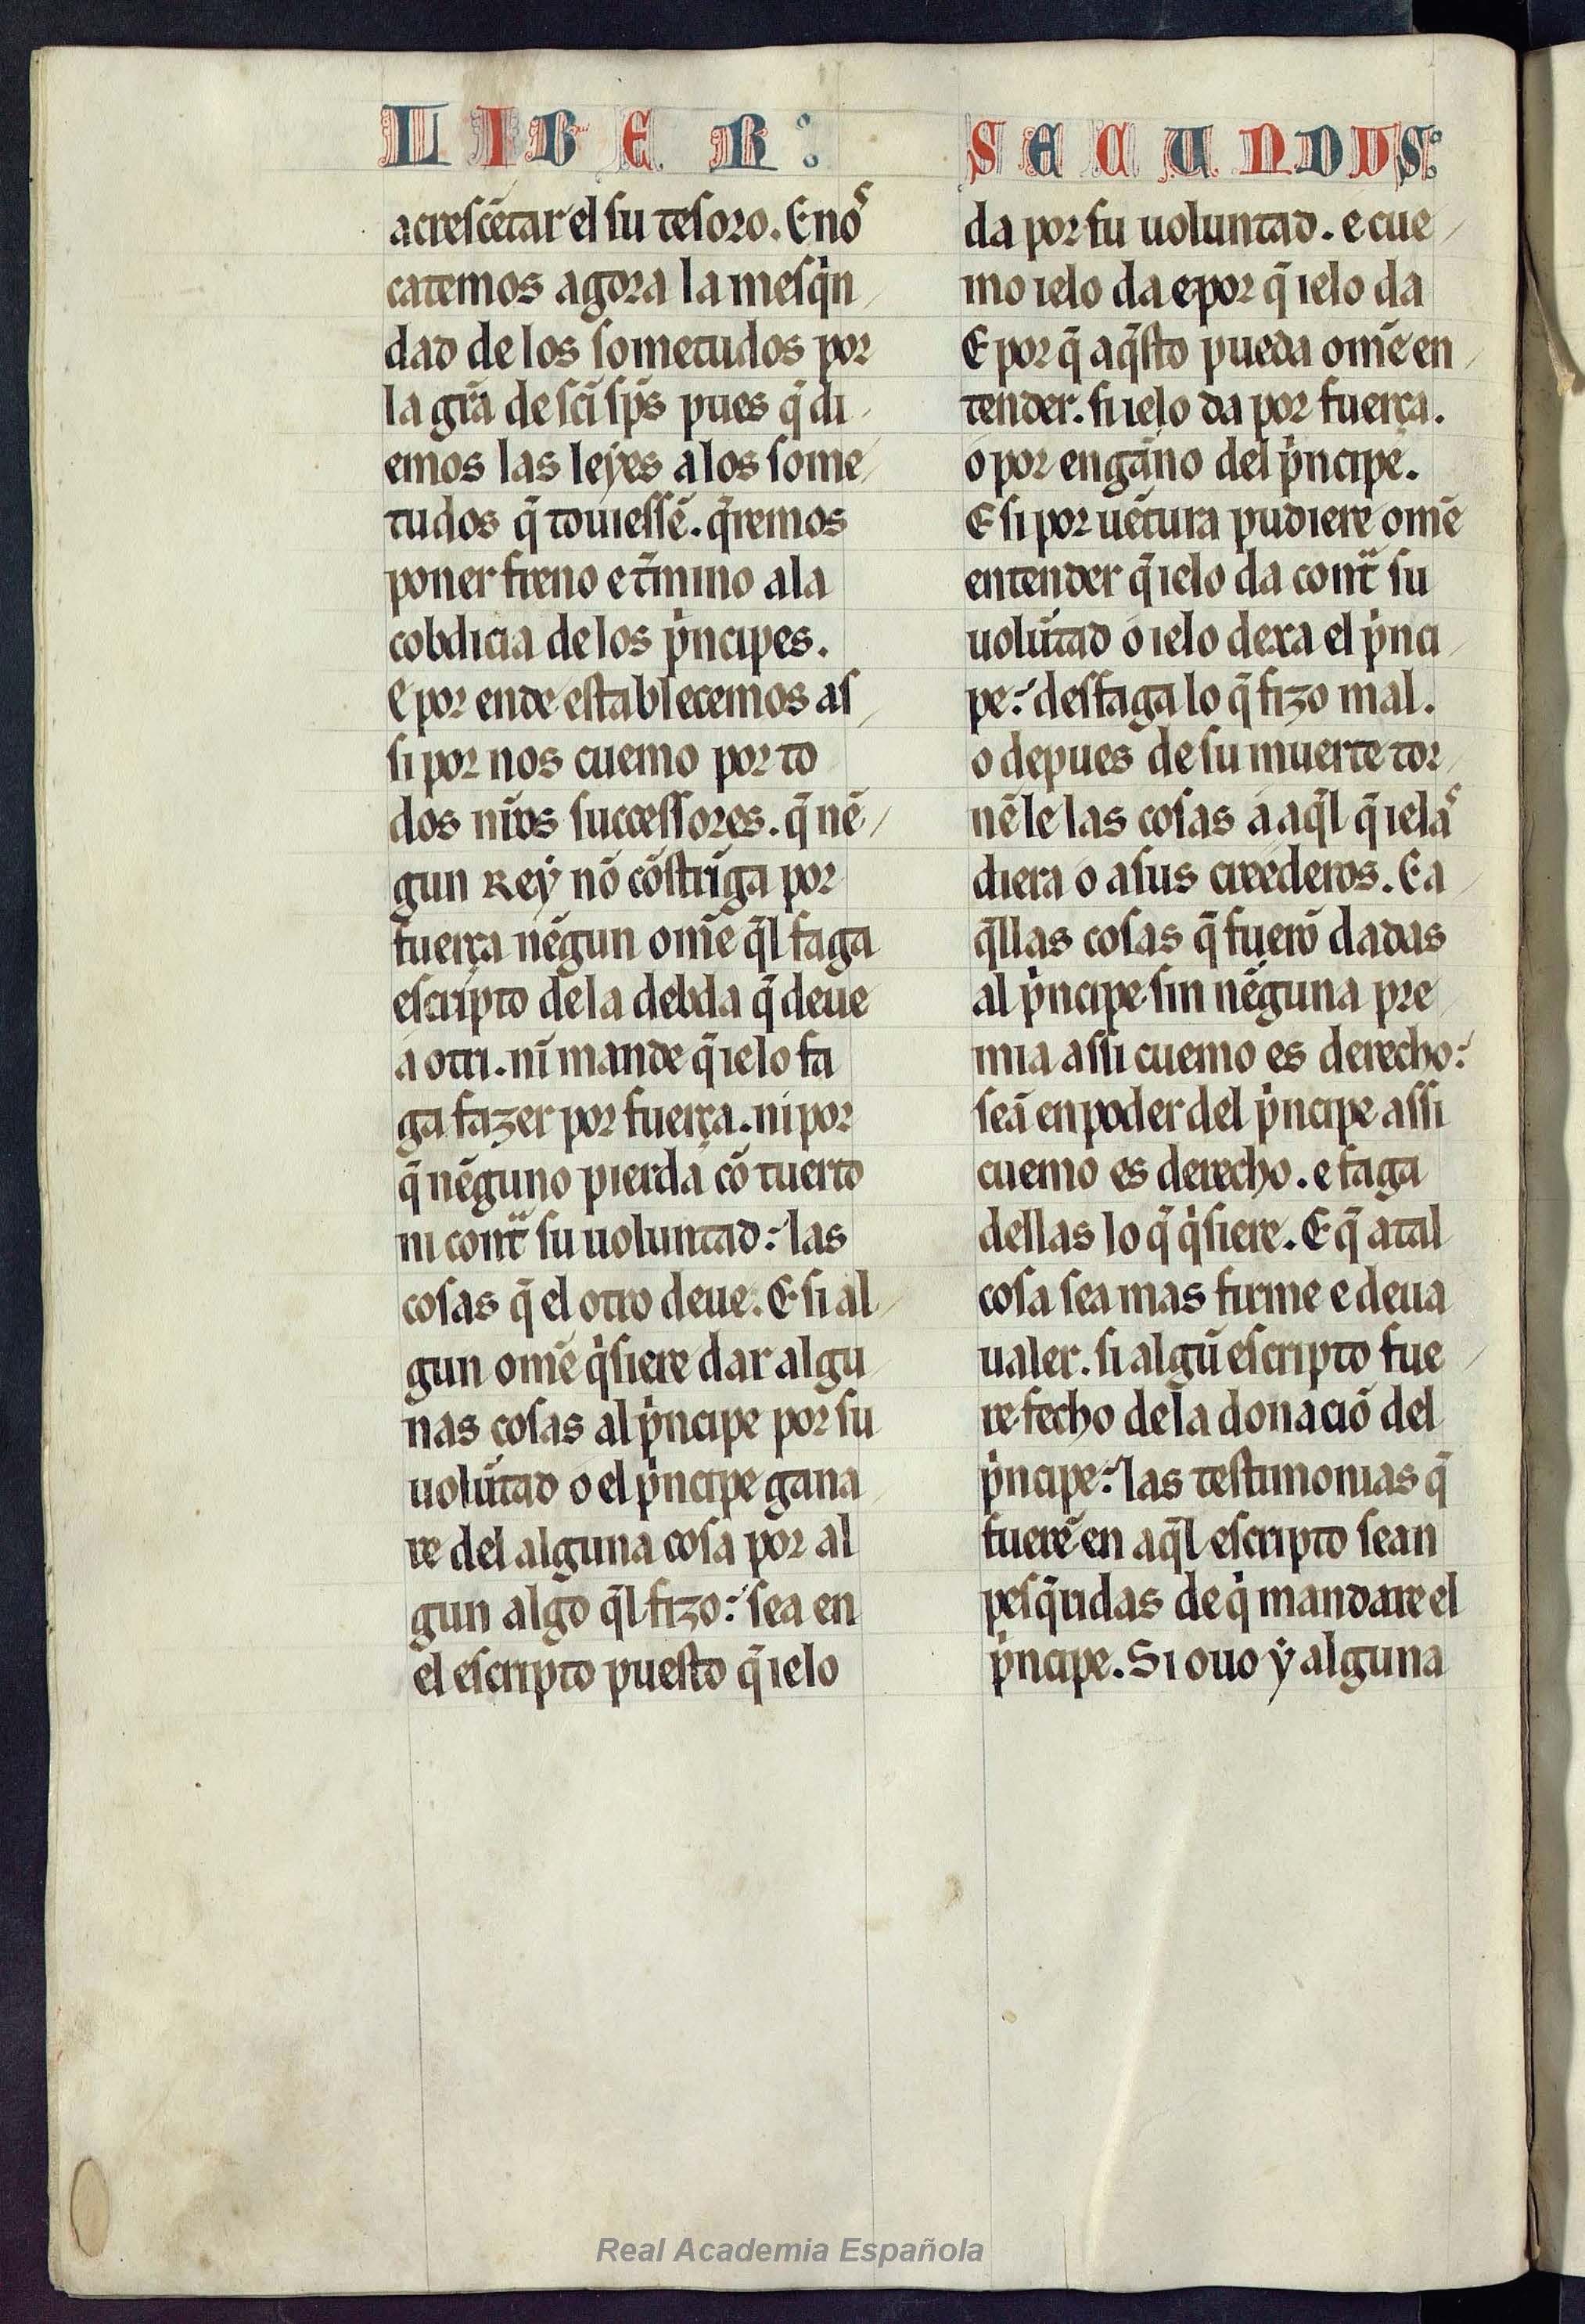 LIBER:
acrescētar el su tesoro. E noˢ
catemos agora la mesq̇n
dad de los sometudos por
la gr̄a de sc̄i sp̄s pues q̄ di
emos las leyes a los some
tudos q̄ touiessē. q̄remos
poner freno e t̄mino a la
cobdicia de los ṗncipes.
E por ende establecemos as
si por nos cuemo por to
dos nr̄os successores. q̄ nē
gun Rey nō cōstrīga por
fuerça nēgun omē q̄l faga
escripto de la debda q̄ deue
a otri. nī mande q̄ ielo fa
ga fazer por fuerça. ni por
q̄ nēguno pierda cō tuerto
ni cont̄ su uoluntad: las
cosas q̄ el otro deue. E si al
gun omē q̇siere dar algu
nas cosas al ṗncipe por su
uolūtad o el ṗncipe gana
re del alguna cosa por al
gun algo q̄l fizo: sea en
el escripto puesto q̄ ielo
SECUNDUS:
da por su uoluntad. e cue
mo ielo da e por q̄ ielo da
E por q̄ aq̄sto pueda omē en
tender. si ielo da por fuerça.
o por enganno del ṗncipe.
E si por uētura pudiere omē
entender q̄ ielo da cont̄ su
uolūtad o ielo dexa el ṗnci
pe: desfaga lo q̄ fizo mal.
o depues de su muerte tor
nēle las cosas a aq̄l q̄ ielaˢ
diera o a sus ereederos. E a
q̄llas cosas q̄ fuerō dadas
al ṗncipe sin nēguna pre
mia assi cuemo es derecho:
seā en poder del ṗncipe assi
cuemo es derecho. e faga
dellas lo q̄ q̇siere. E q̄ atal
cosa sea mas firme e deua
ualer. si algū escripto fue
re fecho de la donaciō del
ṗncipe: las testimonias q̄
fuerē en aq̄l escripto sean
pesq̄ridas de q̇ mandare el
ṗncipe. Si ouo ẏ alguna
Real Academia Española